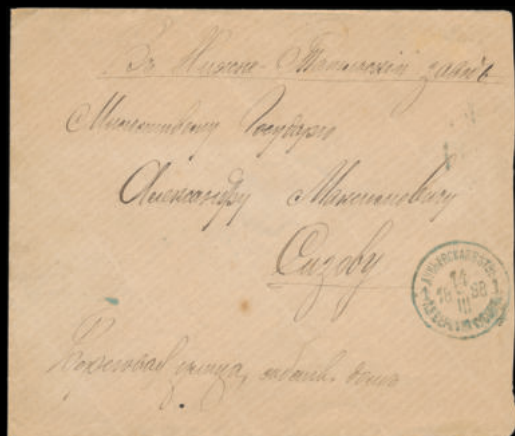 Въ Нижне-Тагильскій заводъ
Милостивому Государю
Александру Максимовичу
Сизову
14
18 98
III
улица, собств. домъ